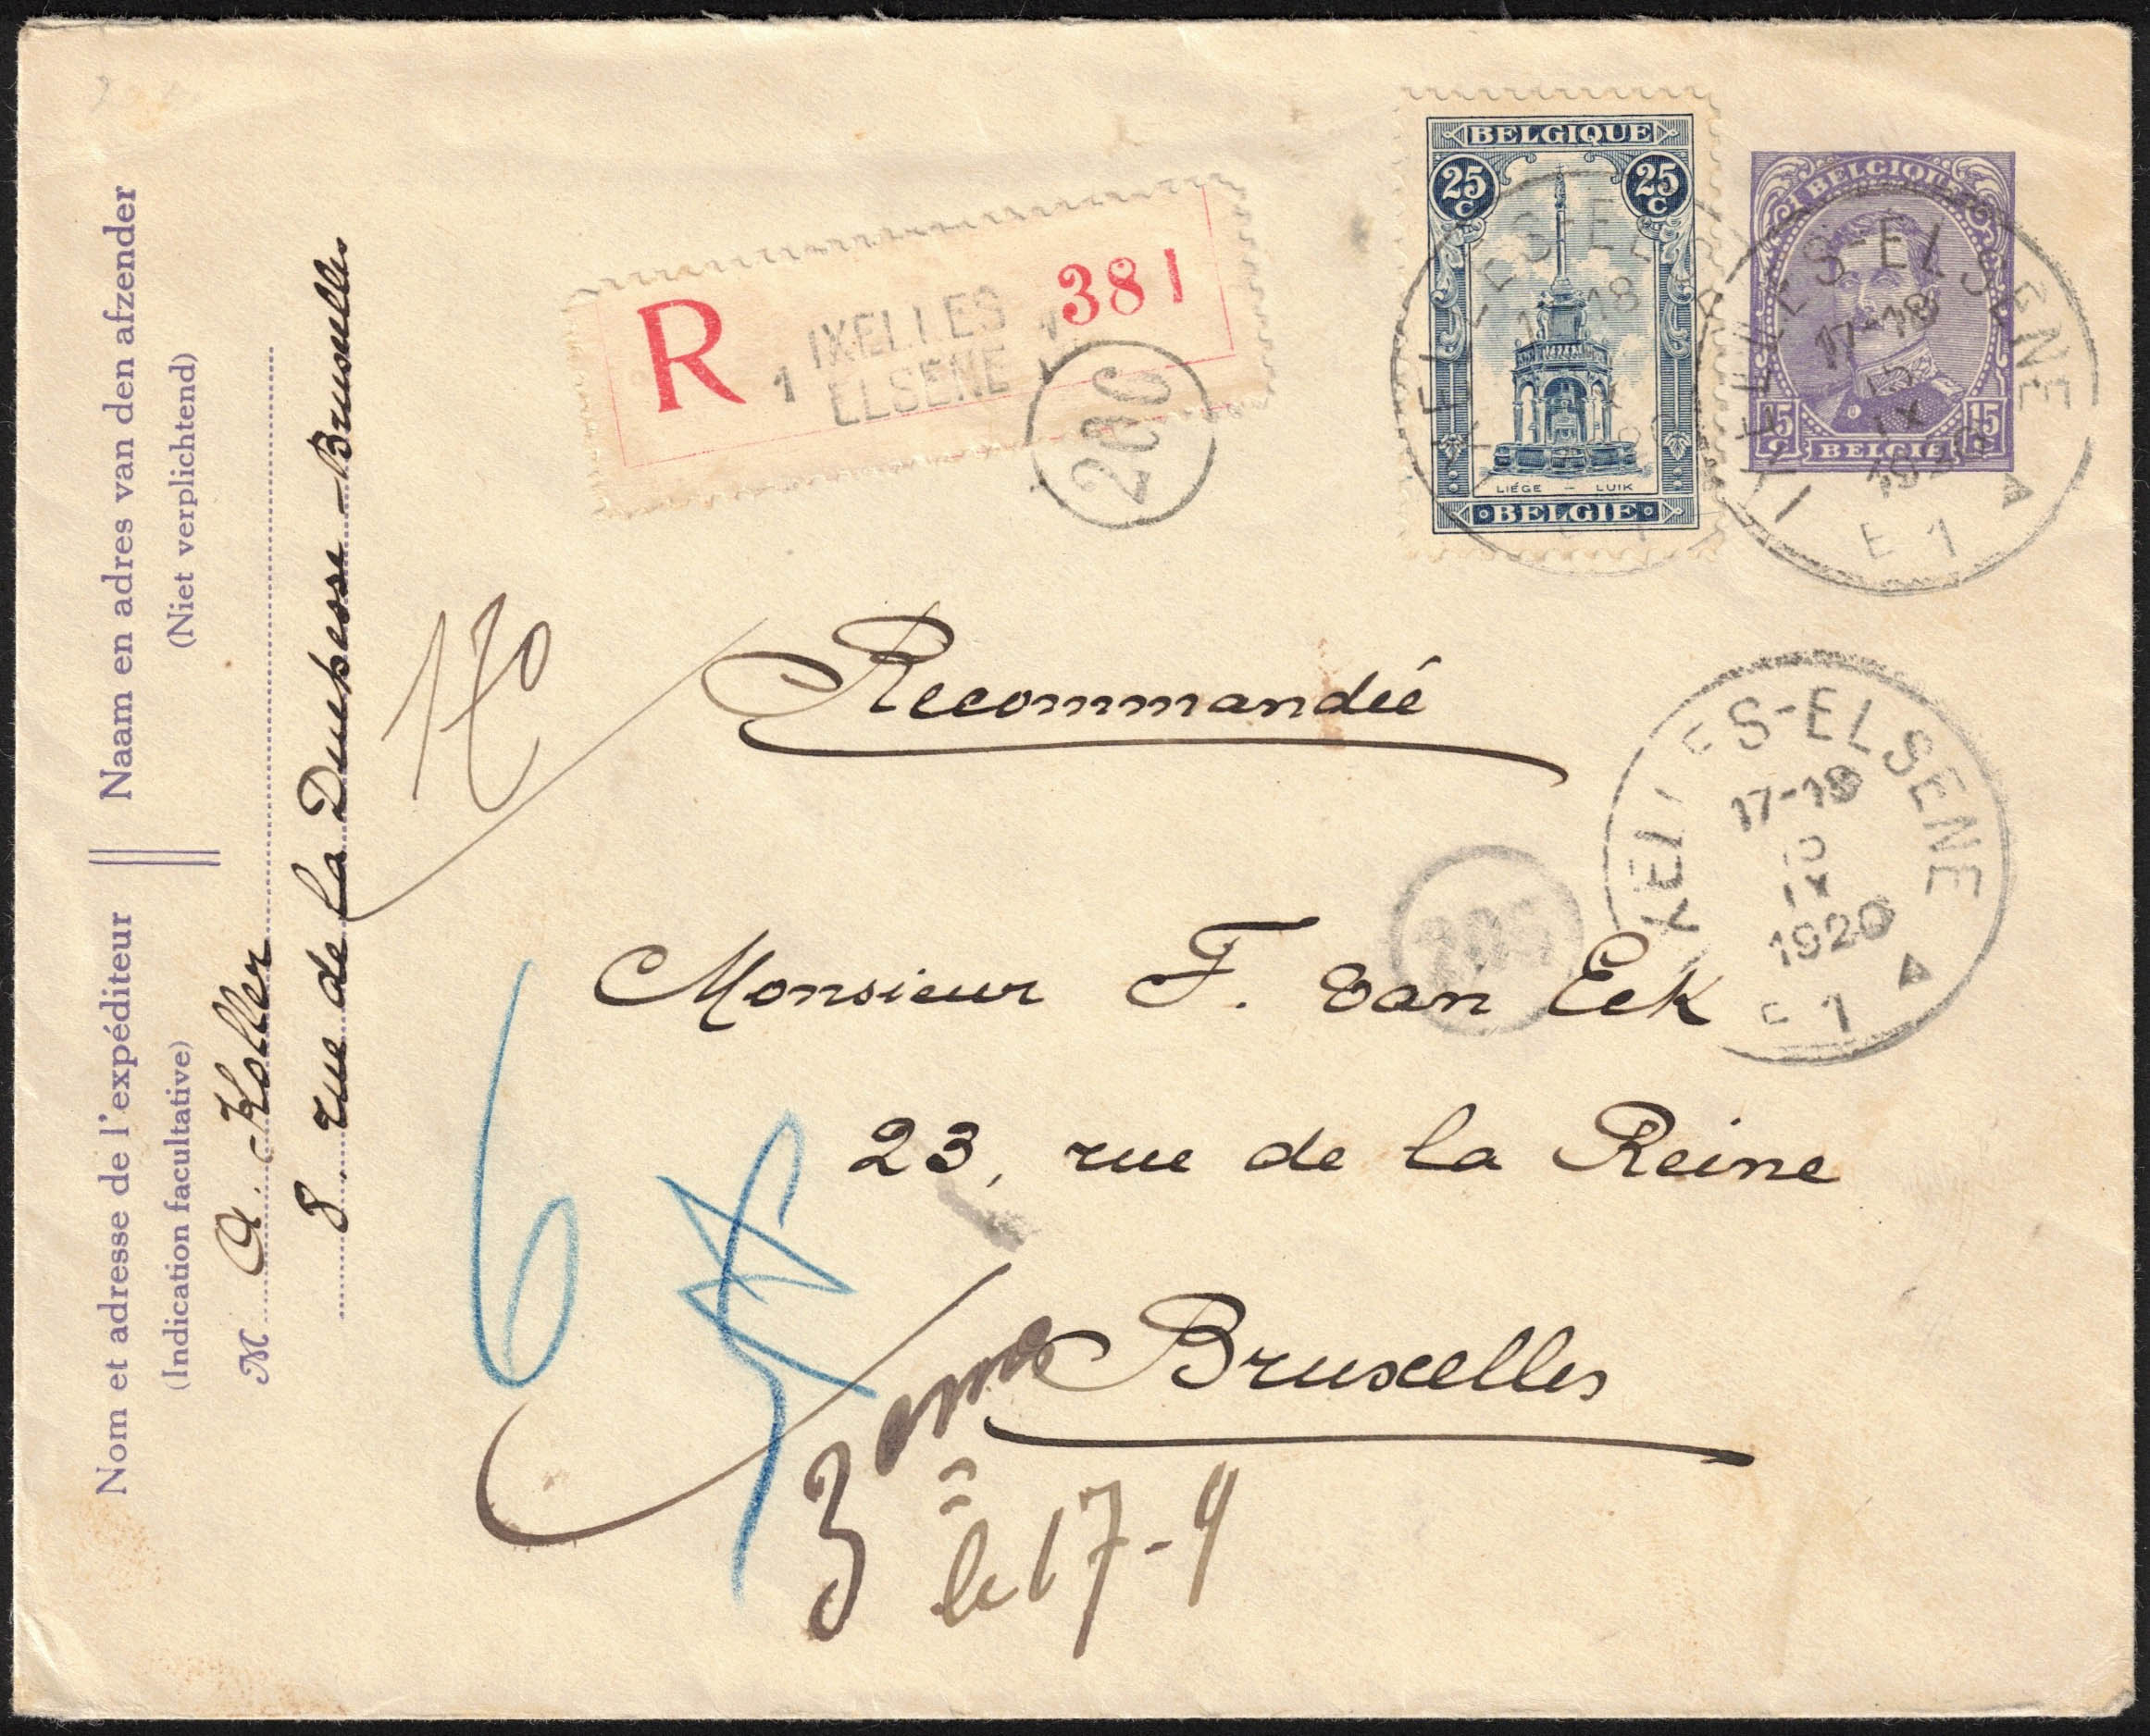 Naam en adres van den afzender
(Niet verplichtend)
Nom et adresse de l'expéditeur
(Indication facultative)
M A. Koller
8, rue de la Duchesse - Bruxelles
R 1 IXELLES ELSENE 1 381
206
BELGIQUE
25 C 25 C
LIÉGE – LUIK
BELGIE
BELGIQUE
15 C 15 C
BELGIË
IXELLES-ELSENE
17-18
15
IX
1920
E 1
170
Recommandée
IXELLES-ELSENE
17-18
IX
1920
E 1
Monsieur F. Van Eck
23, rue de la Reine
Bruxelles
6
3
le 17-9